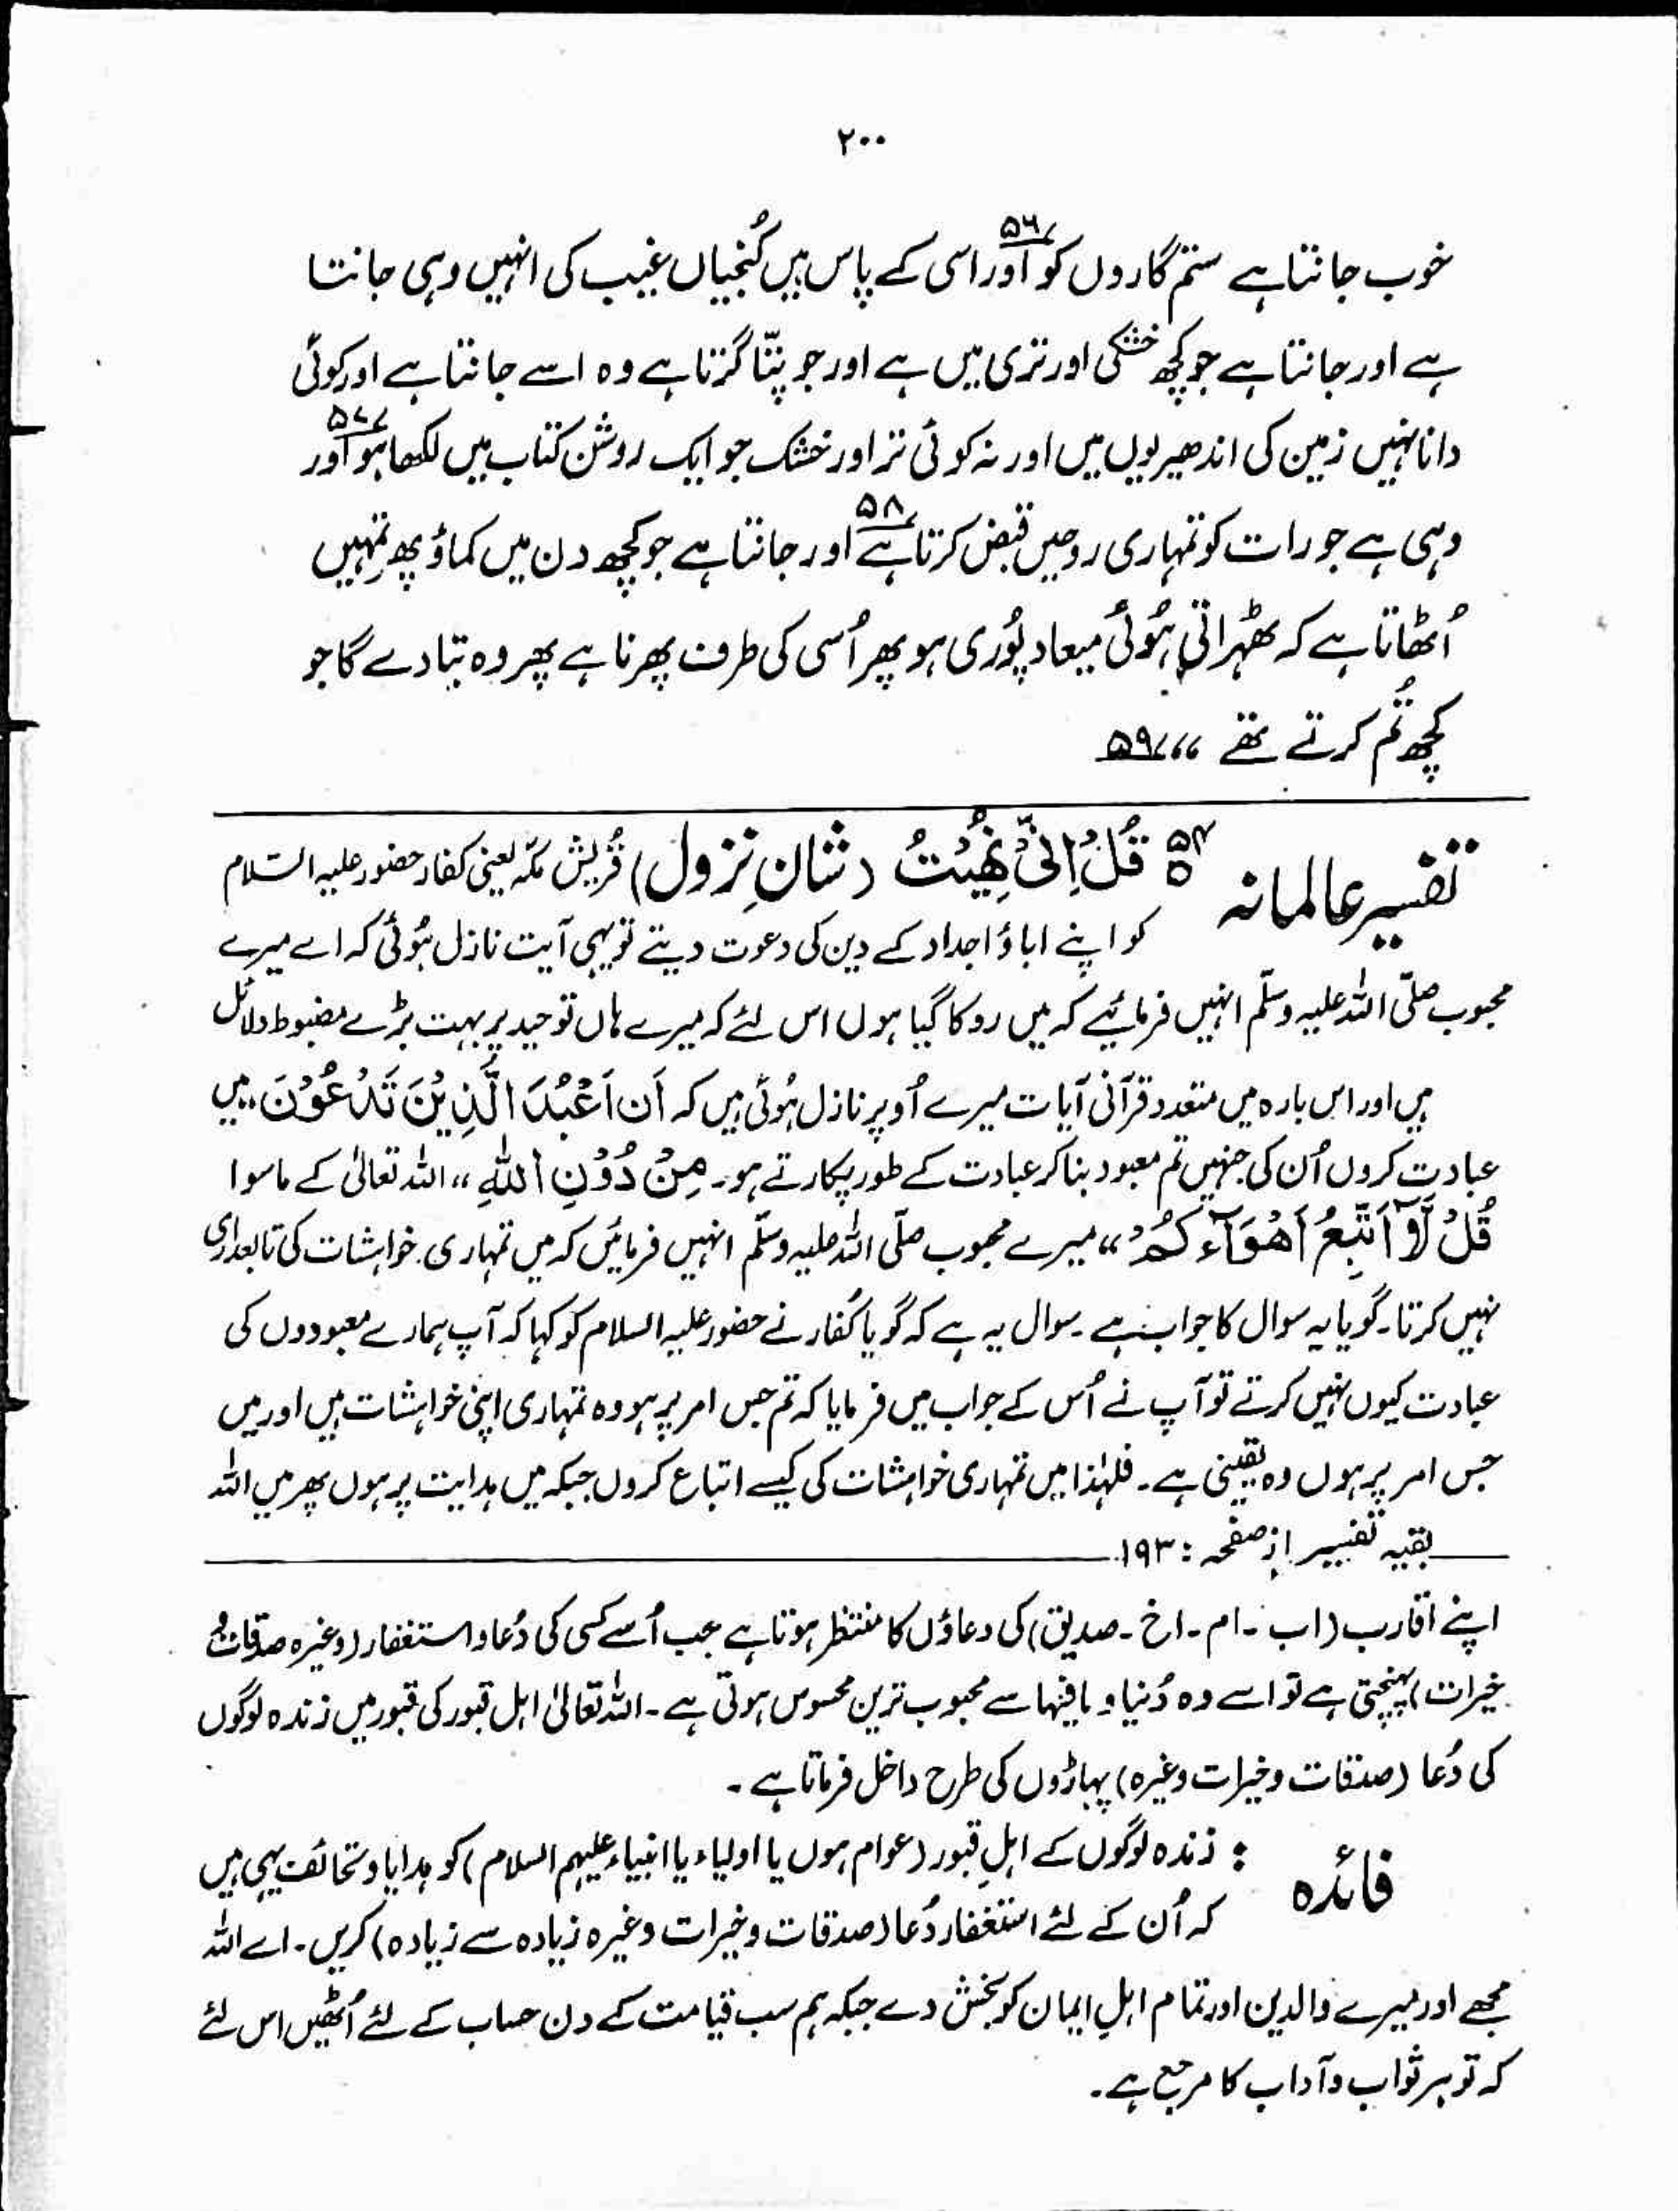 ۲۰۰
خوب جانتا ہے ستم گاروں کو ۵۶ اور اسی کے پاس ہیں کُنجیاں غیب کی انہیں وہی جانتا
ہے اور جانتا ہے جو کچھ خشکی اور تری میں ہے اور جو پتّا گرتا ہے وہ اسے جانتا ہے اور کوئی
دانا نہیں زمین کی اندھیریوں میں اور نہ کوئی تر اور خشک جو ایک روشن کتاب میں لکھا ہو ۵۷ اور
وہی ہے جو رات کو تمہاری روحیں قبض کرتا ہے ۵۸ اور جانتا ہے جو کچھ دن میں کماؤ پھر تمہیں
اُٹھاتا ہے کہ ٹھہرائی ہُوئی میعاد پُوری ہو پھر اُسی کی طرف پھرنا ہے پھر وہ بتا دے گا جو
کچھ تُم کرتے تھے ،، ۵۹
تفسیر عالمانہ ۵۲ قُلْ اِنِّیْ نُھِیْتُ (شانِ نزول) قُریش مکّہ یعنی کفار حضور علیہ السّلام
کو اپنے اباؤ اجداد کے دین کی دعوت دیتے تو یہی آیت نازل ہُوئی کہ اے میرے
محبوب صلّی اللہ علیہ وسلّم انہیں فرمائیے کہ میں روکا گیا ہوں اس لئے کہ میرے ہاں توحید پر بہت بڑے مضبوط دلائل
ہیں اور اس بارہ میں متعدد قرآنی آیات میرے اُوپر نازل ہُوئی ہیں کہ اَن اَعْبُدَ الَّذِیْنَ تَدْعُوْنَ میں
عبادت کروں اُن کی جنہیں تم معبود بنا کر عبادت کے طور پکارتے ہو۔ مِنْ دُوْنِ اللّٰہِ ،، اللہ تعالیٰ کے ماسوا
قُلْ لَّآ اَتَّبِعُ اَھْوَآءَکُمْ ،، میرے محبوب صلّی اللہ علیہ وسلّم انہیں فرمائیں کہ میں تمہاری خواہشات کی تابعداری
نہیں کرتا۔ گویا یہ سوال کا جواب ہے۔ سوال یہ ہے کہ گویا کفار نے حضور علیہ السلام کو کہا کہ آپ ہمارے معبودوں کی
عبادت کیوں نہیں کرتے تو آپ نے اُس کے جواب میں فرمایا کہ تم جس امر پر ہو وہ تمہاری اپنی خواہشات ہیں اور میں
جس امر پر ہوں وہ یقینی ہے۔ فلہٰذا میں تمہاری خواہشات کی کیسے اتباع کروں جبکہ میں ہدایت پر ہوں پھر میں اللہ
بقیہ تفسیر از صفحہ : ۱۹۳
اپنے اقارب (اب ۔ ام ۔ اخ ۔ صدیق) کی دعاؤں کا منتظر ہوتا ہے جب اُسے کسی کی دُعا و استغفار (وغیرہ صدقات و
خیرات) پہنچتی ہے تو اسے وہ دُنیا و مافیہا سے محبوب ترین محسوس ہوتی ہے۔ اللہ تعالیٰ اہل قبور کی قبور میں زندہ لوگوں
کی دُعا (صدقات و خیرات وغیرہ) پہاڑوں کی طرح داخل فرماتا ہے ۔
فائدہ : زندہ لوگوں کے اہلِ قبور (عوام ہوں یا اولیاء یا انبیاء علیہم السلام) کو ہدایا و تحائف یہی ہیں
کہ اُن کے لئے استغفار دُعا (صدقات و خیرات وغیرہ زیادہ سے زیادہ) کریں۔ اے اللہ
مجھے اور میرے والدین اور تمام اہلِ ایمان کو بخش دے جبکہ ہم سب قیامت کے دن حساب کے لئے اُٹھیں اس لئے
کہ تو ہر ثواب و آداب کا مرجع ہے۔